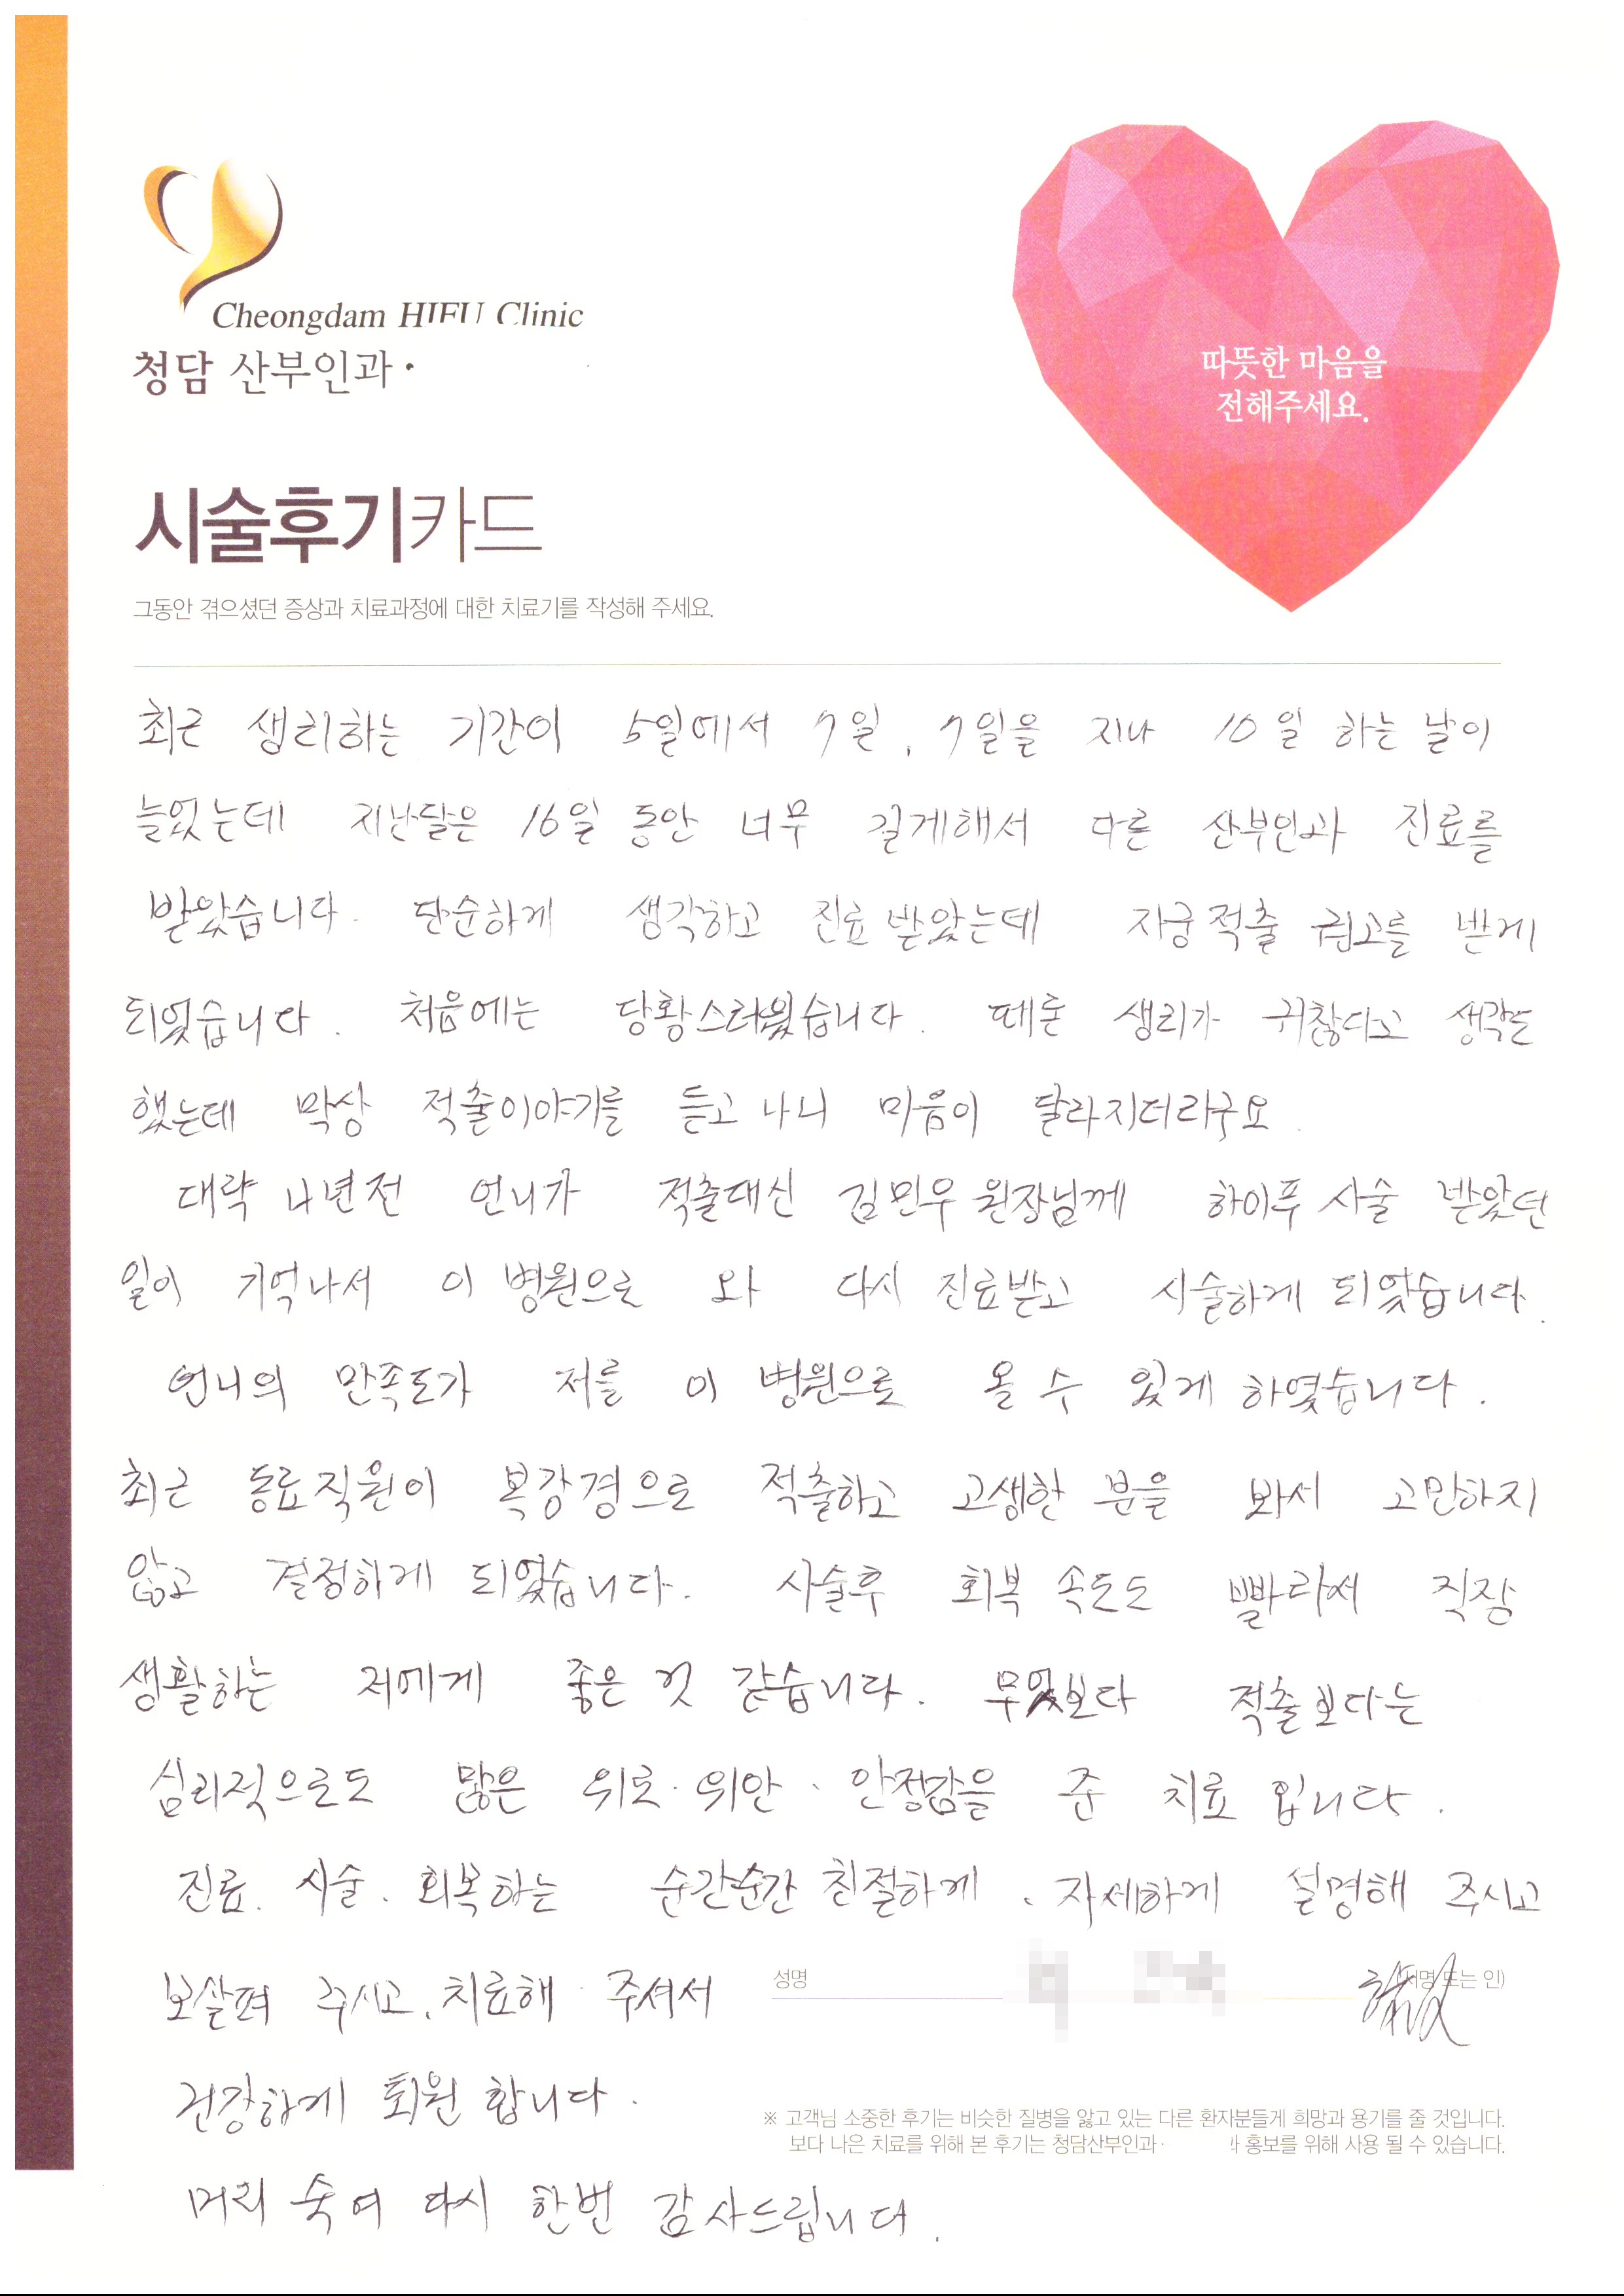 Cheongdam HIFU Clinic
청담 산부인과
따뜻한 마음을
전해주세요.
시술후기카드
그동안 겪으셨던 증상과 치료과정에 대한 치료기를 작성해 주세요.
최근 생리하는 기간이 5일에서 7일, 7일을 지나 10일 하는 날이
늘었는데 지난달은 16일 동안 너무 길게해서 다른 산부인과 진료를
받았습니다. 단순하게 생각하고 진료 받았는데 자궁적출 권고를 받게
되었습니다. 처음에는 당황스러웠습니다. 때론 생리가 귀찮다고 생각도
했는데 막상 적출이야기를 듣고 나니 마음이 달라지더라구요.
대략 4년전 언니가 적출대신 김민우 원장님께 하이푸 시술 받았던
일이 기억나서 이 병원으로 와 다시 진료받고 시술하게 되었습니다.
언니의 만족도가 저를 이 병원으로 올 수 있게 하였습니다.
최근 동료직원이 복강경으로 적출하고 고생한 분을 봐서 고민하지
않고 결정하게 되었습니다. 시술후 회복 속도도 빨라서 직장
생활하는 저에게 좋은 것 같습니다. 무엇보다 적출보다는
심리적으로도 많은 위로·위안·안정감을 준 치료 입니다.
진료. 시술. 회복하는 순간순간 친절하게, 자세하게 설명해 주시고
보살펴 주시고, 치료해 주셔서
성명
명 또는 인)
건강하게 퇴원 합니다.
※ 고객님 소중한 후기는 비슷한 질병을 앓고 있는 다른 환자분들게 희망과 용기를 줄 것입니다.
보다 나은 치료를 위해 본 후기는 청담산부인과· 홍보를 위해 사용 될 수 있습니다.
머리 숙여 다시 한번 감사드립니다.